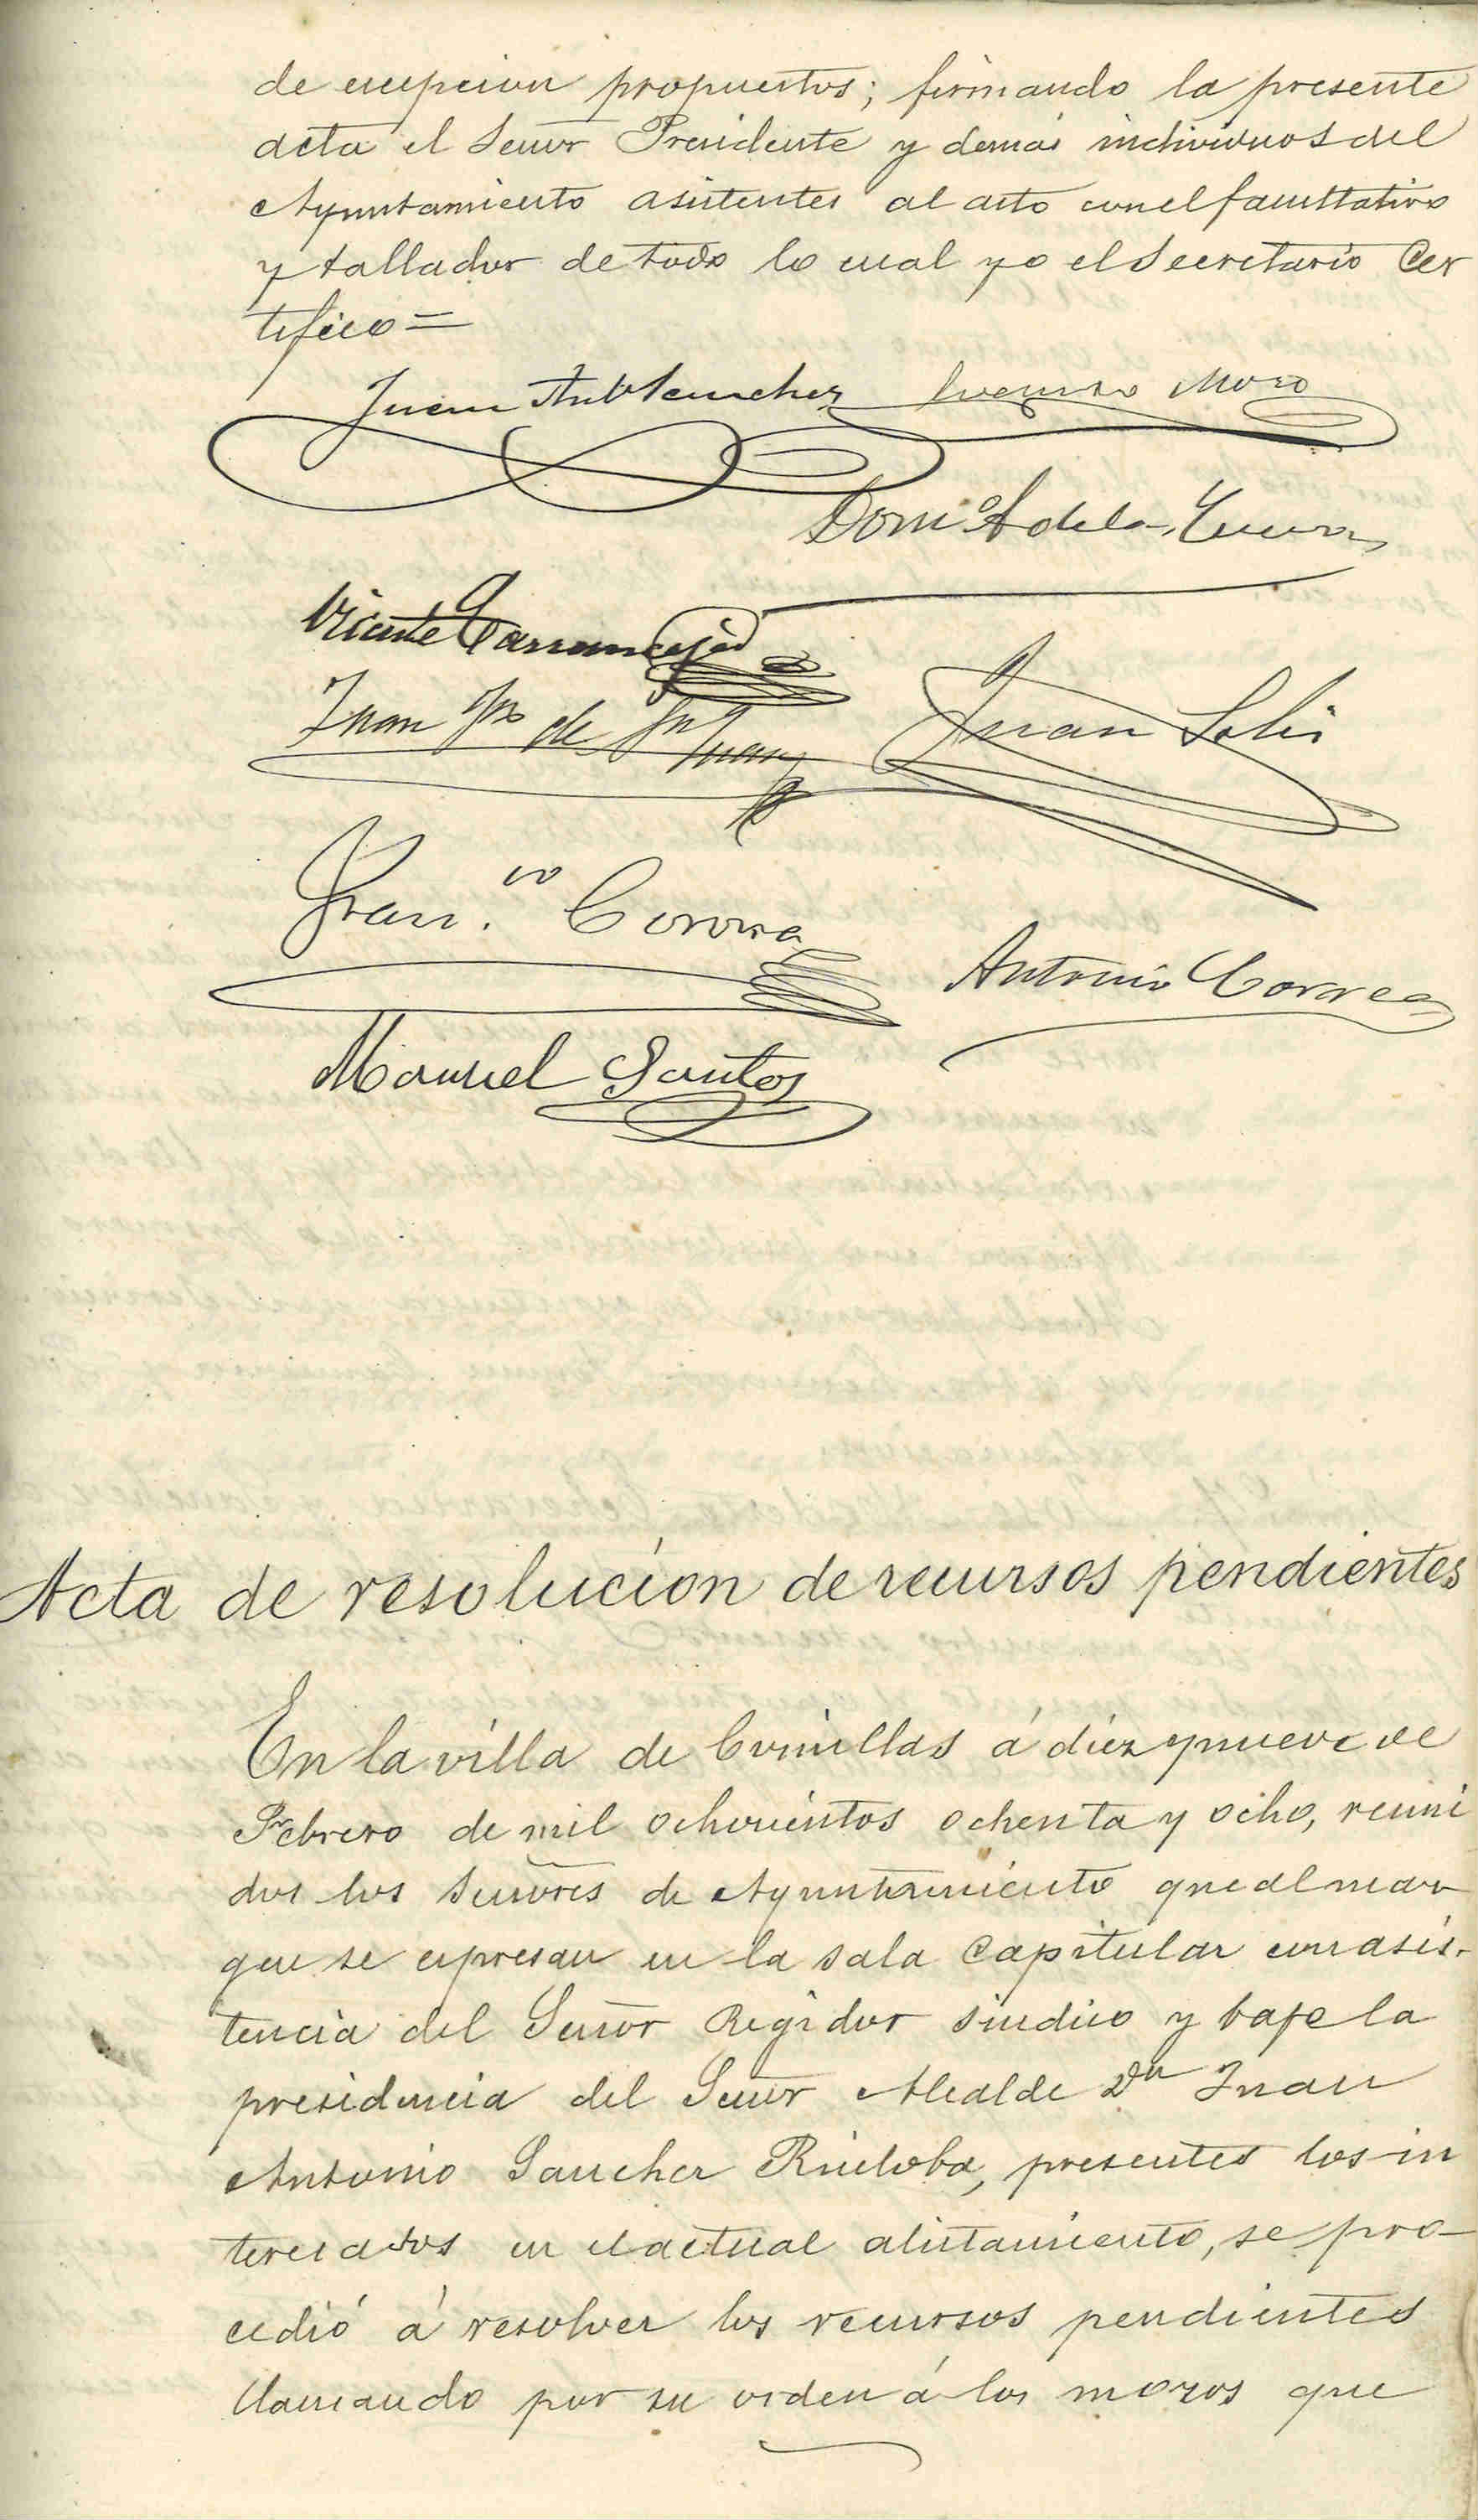 de excepcion propuestos; firmando la presente
acta el Señor Presidente y demás individuos del
Ayuntamiento asistentes al acto con el facultativo
y tallador de todo lo cual yo el Secretario Cer
tifico=
Juan Ant Sanchez Moro
Dom.º A de la Cueva
Vicente Carrancejas
Juan de Sn Juan Juan Solis
Fran.co Correa
Antonio Correa
Manuel Santos
Acta de resolucion de recursos pendientes
En la villa de Comillas á diez y nueve de
Febrero de mil ochocientos ochenta y ocho, reuni
dos los Señores de Ayuntamiento que al mar
gen se expresan en la sala Capitular con asis-
tencia del Señor Regidor sindico y bajo la
presidencia del Señor Alcalde Dn Juan
Antonio Sanchez Ruiloba, presentes los in
teresados en el actual alistamiento, se pro-
cedió á resolver los recursos pendientes
llamando por su orden á los mozos que